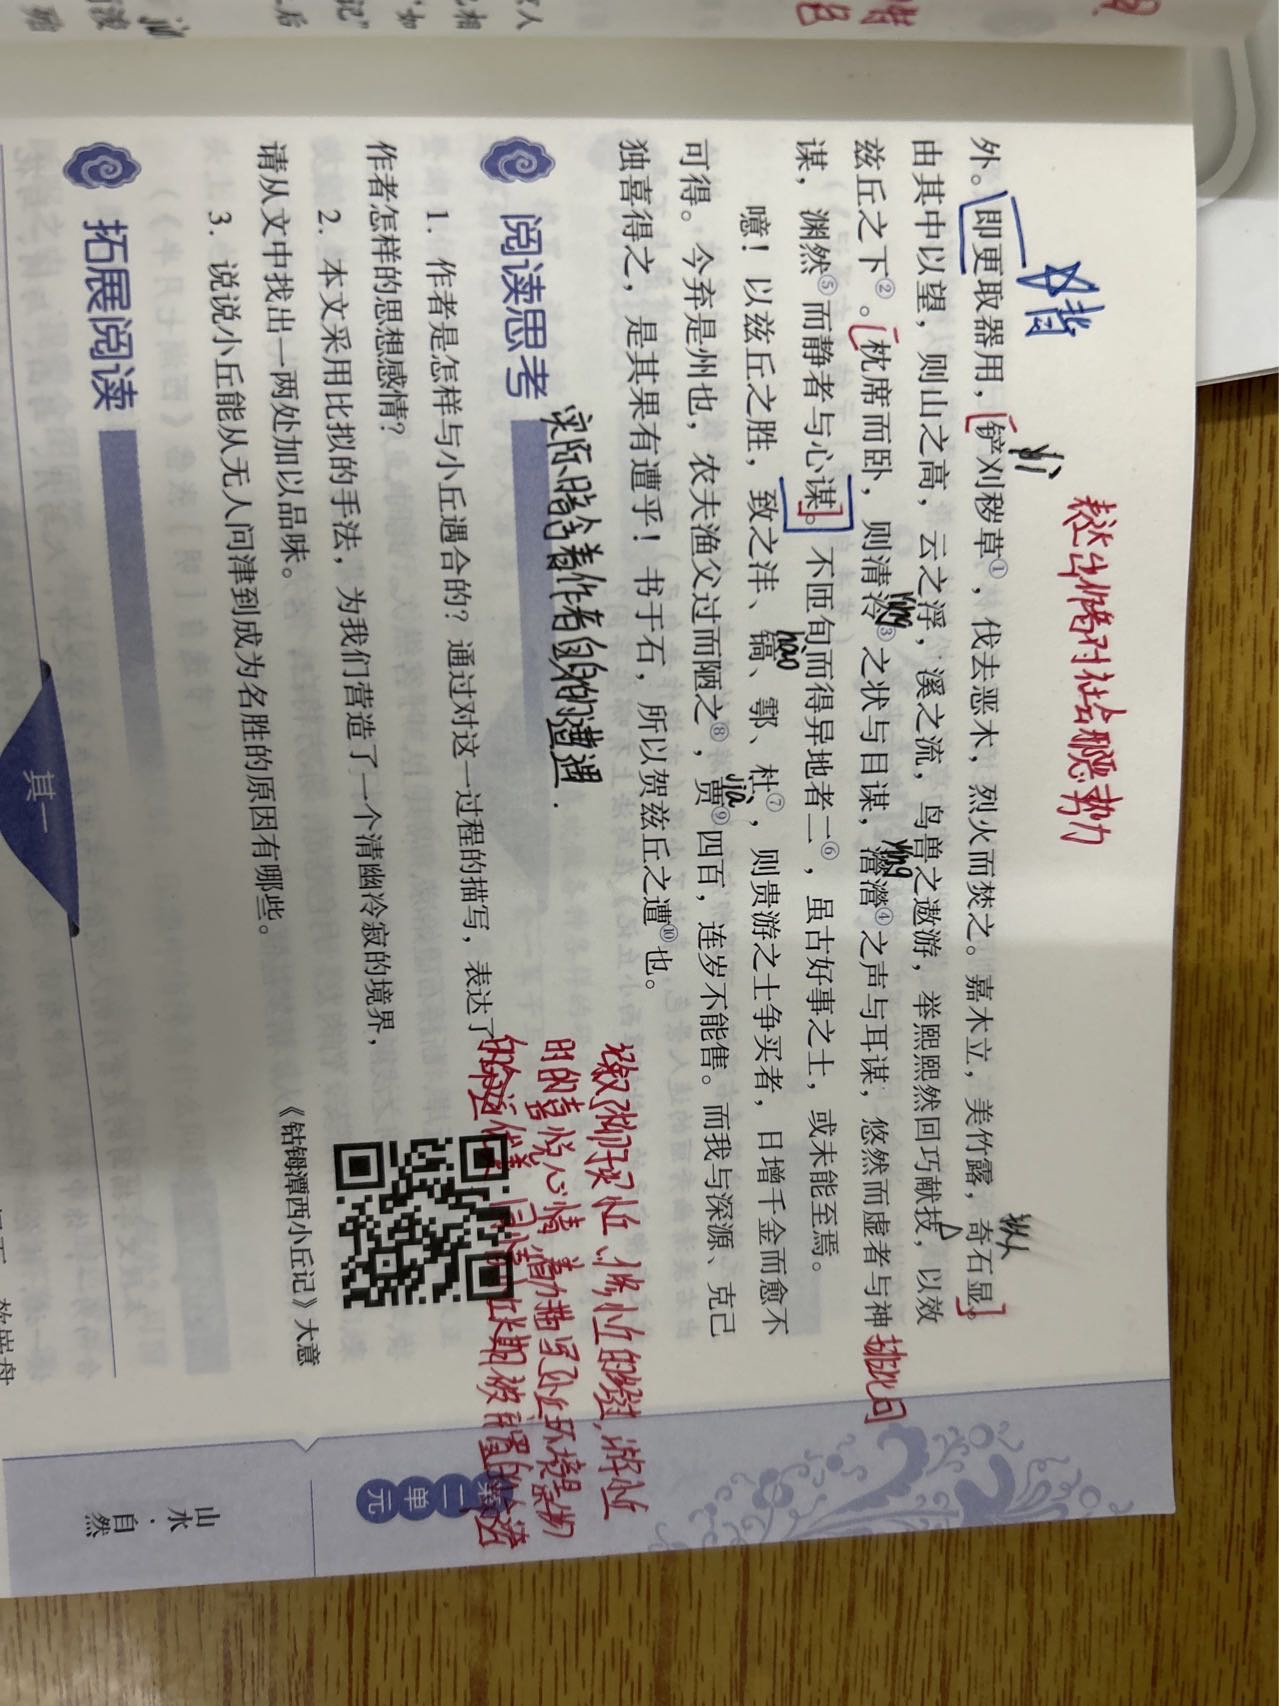 背
表达出作者对社会恶势力
外。即更取器用，铲刈秽草①，伐去恶木，烈火而焚之。嘉木立，美竹露，奇石显。
yì
由其中以望，则山之高，云之浮，溪之流，鸟兽之遨游，举熙熙然回巧献技，以效
兹丘之下②。枕席而卧，则清泠③之状与目谋，瀯瀯④之声与耳谋，悠然而虚者与神
排比句
谋，渊然⑤而静者与心谋。不匝旬而得异地者二⑥，虽古好事之士，或未能至焉。
噫！以兹丘之胜，致之沣、镐、鄠、杜⑦，则贵游之士争买者，日增千金而愈不
hào
可得。今弃是州也，农夫渔父过而陋之⑧，贾⑨四百，连岁不能售。而我与深源、克己
jià
独喜得之，是其果有遭乎！书于石，所以贺兹丘之遭⑩也。
实际暗含着作者自身的遭遇.
阅读思考
1. 作者是怎样与小丘遇合的？通过对这一过程的描写，表达了
作者怎样的思想感情？
2. 本文采用比拟的手法，为我们营造了一个清幽冷寂的境界，
请从文中找出一两处加以品味。
3. 说说小丘能从无人问津到成为名胜的原因有哪些。
时的喜悦心情
《钴𬭁潭西小丘记》大意
拓展阅读
其一
第二单元
山水·自然